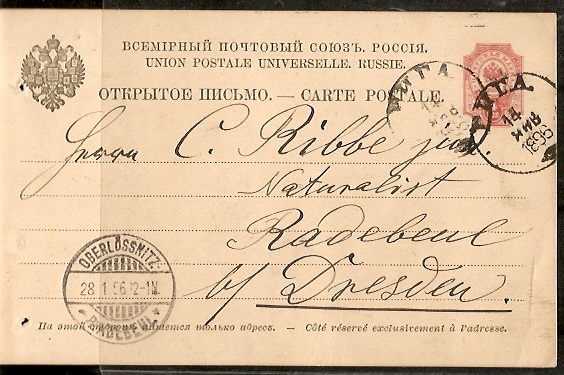 ВСЕМІРНЫЙ ПОЧТОВЫЙ СОЮЗЪ. РОССІЯ.
UNION POSTALE UNIVERSELLE. RUSSIE.
ОТКРЫТОЕ ПИСЬМО. — CARTE POSTALE.
РИГА
РИГА
14
ЯНВ
1896
Herrn C. Ribbe jun.
Naturalist
Radebeul
b/ Dresden.
OBERLÖSSNITZ-
28.1.96.12-1N.
* RADEBEUL *
На этой сторонѣ пишется только адресъ. — Côté réservé exclusivement à l'adresse.